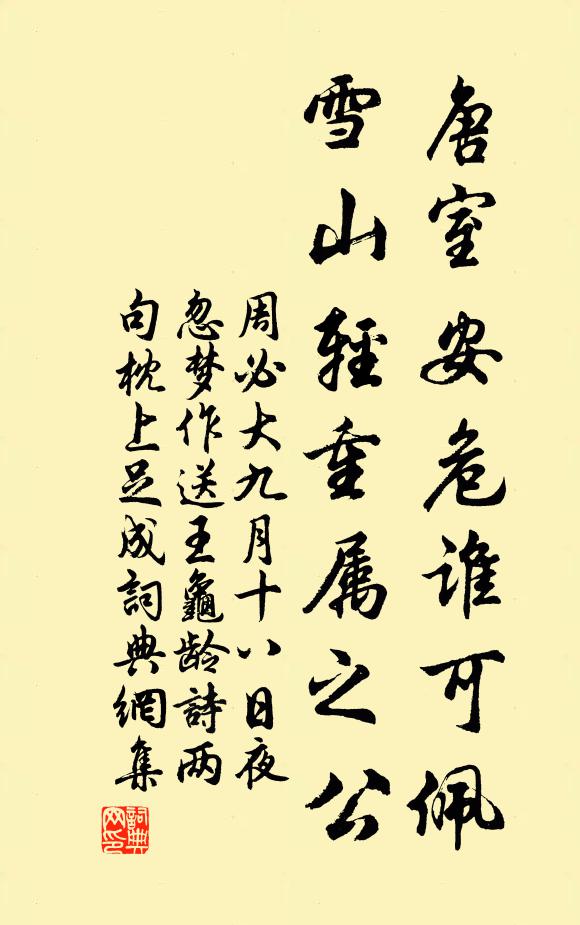 唐室安危谁可佩
雪山輕重属之公
周必大九月十八日夜
忽梦作送王龜龄詩两
句枕上足成詞典網集
詞典网印